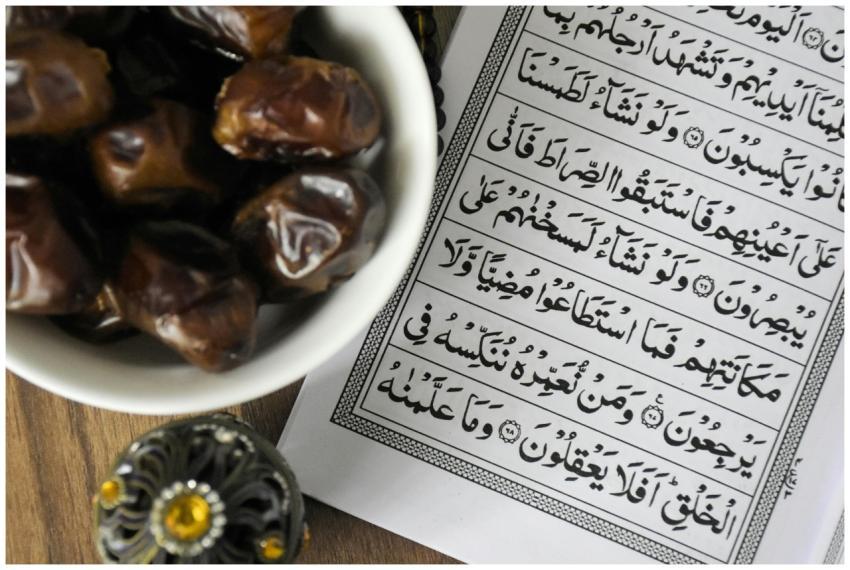 اَلْيَوْمَ
اَيْدِيْهِمْ وَتَشْهَدُ اَرْجُلُهُمْ بِمَا
يَكْسِبُوْنَ ﴿٦٥﴾ وَلَوْ نَشَآءُ لَطَمَسْنَا
عَلٰٓى اَعْيُنِهِمْ فَاسْتَبَقُوا الصِّرَاطَ فَاَنّٰى
يُبْصِرُوْنَ ﴿٦٦﴾ وَلَوْ نَشَآءُ لَمَسَخْنٰهُمْ عَلٰى
مَكَانَتِهِمْ فَمَا اسْتَطَاعُوْا مُضِيًّا وَّلَا
يَرْجِعُوْنَ ﴿٦٧﴾ وَمَنْ نُّعَمِّرْهُ نُنَكِّسْهُ فِى
الْخَلْقِؕ اَفَلَا يَعْقِلُوْنَ ﴿٦٨﴾ وَمَا عَلَّمْنٰهُ